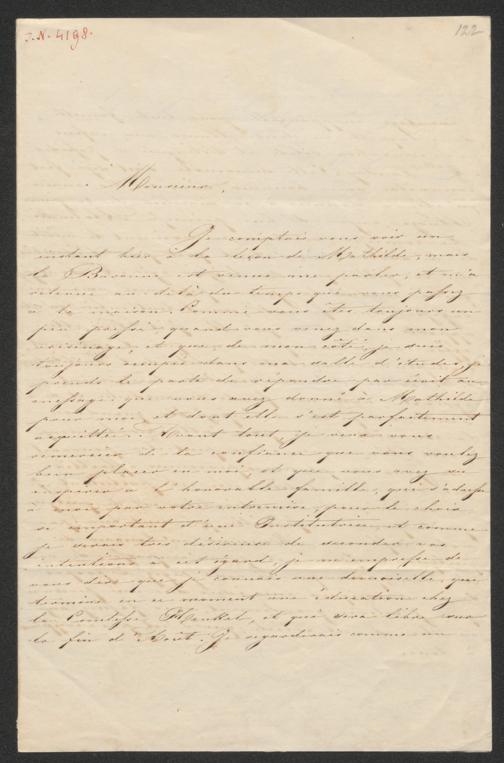 J.N. 4198.
122
Monsieur,
Je comptais vous voir un
instant hier à la leçon de Mathilde, mais
la Baronne est venue me parler, et m'a
retenue au delà du temps que vous passez
à la maison. Comme vous êtes toujours un
peu pressé quand vous venez dans mon
voisinage, et que de mon côté je suis
toujours occupée dans ma salle d'études, je
prends le parti de répondre par écrit au
message que vous avez donné à Mathilde
pour moi et dont elle s'est parfaitement
acquittée. Avant tout, je veux vous
remercier de la confiance que vous voulez
bien placer en moi et que vous avez su
inspirer à l'honorable famille, qui s'adresse
à moi par votre entremise, pour le choix
si important d'une Institutrice, et comme
je serais très désireuse de seconder vos
intentions à cet égard, je m'empresse de
vous dire que je connais une demoiselle, qui
termine en ce moment une éducation chez
la Comtesse Henkel, et qui sera libre vers
la fin d'Août. Je regarderais comme un